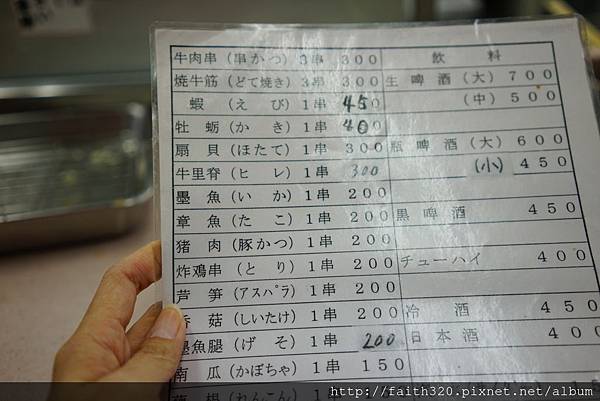 牛肉串（串かつ）3串 300
焼牛筋（どて焼き）3串 300
蝦（えび）1串 450
牡蛎（かき）1串 400
扇貝（ほたて）1串 300
牛里脊（ヒレ）1串 300
墨魚（いか）1串 200
章魚（たこ）1串 200
猪肉（豚かつ）1串 200
炸鶏串（とり）1串 200
芦笋（アスパラ）1串 200
香菇（しいたけ）1串 200
墨魚腿（げそ）1串 200
南瓜（かぼちゃ）1串 150
（れんこん）
飲料
生啤酒（大）700
（中）500
瓶啤酒（大）600
（小）450
黒啤酒 450
チューハイ 400
冷酒 450
日本酒 400
http://faith320.pixnet.net/album